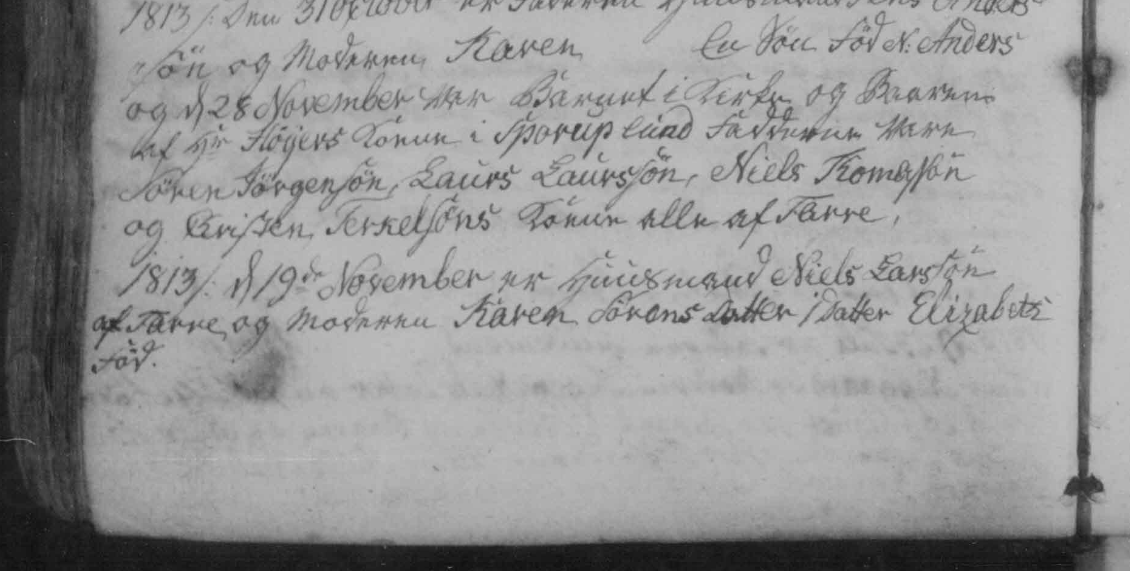 1813/: Den 31 October er Faderen Huusmand Jens Anders
søn og Moderen Karen En Søn Fød N: Anders
og d 28 November var Barnet i Kirke og Baaren
af Hr Høyers Kone i Sporup Lund Fadderne Vare
Søren Jørgensøn, Laurs Laurssøn, Niels Thomassøn
og Kristen Terkelsøns Kone alle af Farre.
1813/: d 19de November er Huusmand Niels Larssøn
af Farre og Moderen Karen Sørens Datter 1 Datter Elizabeth
Fød.